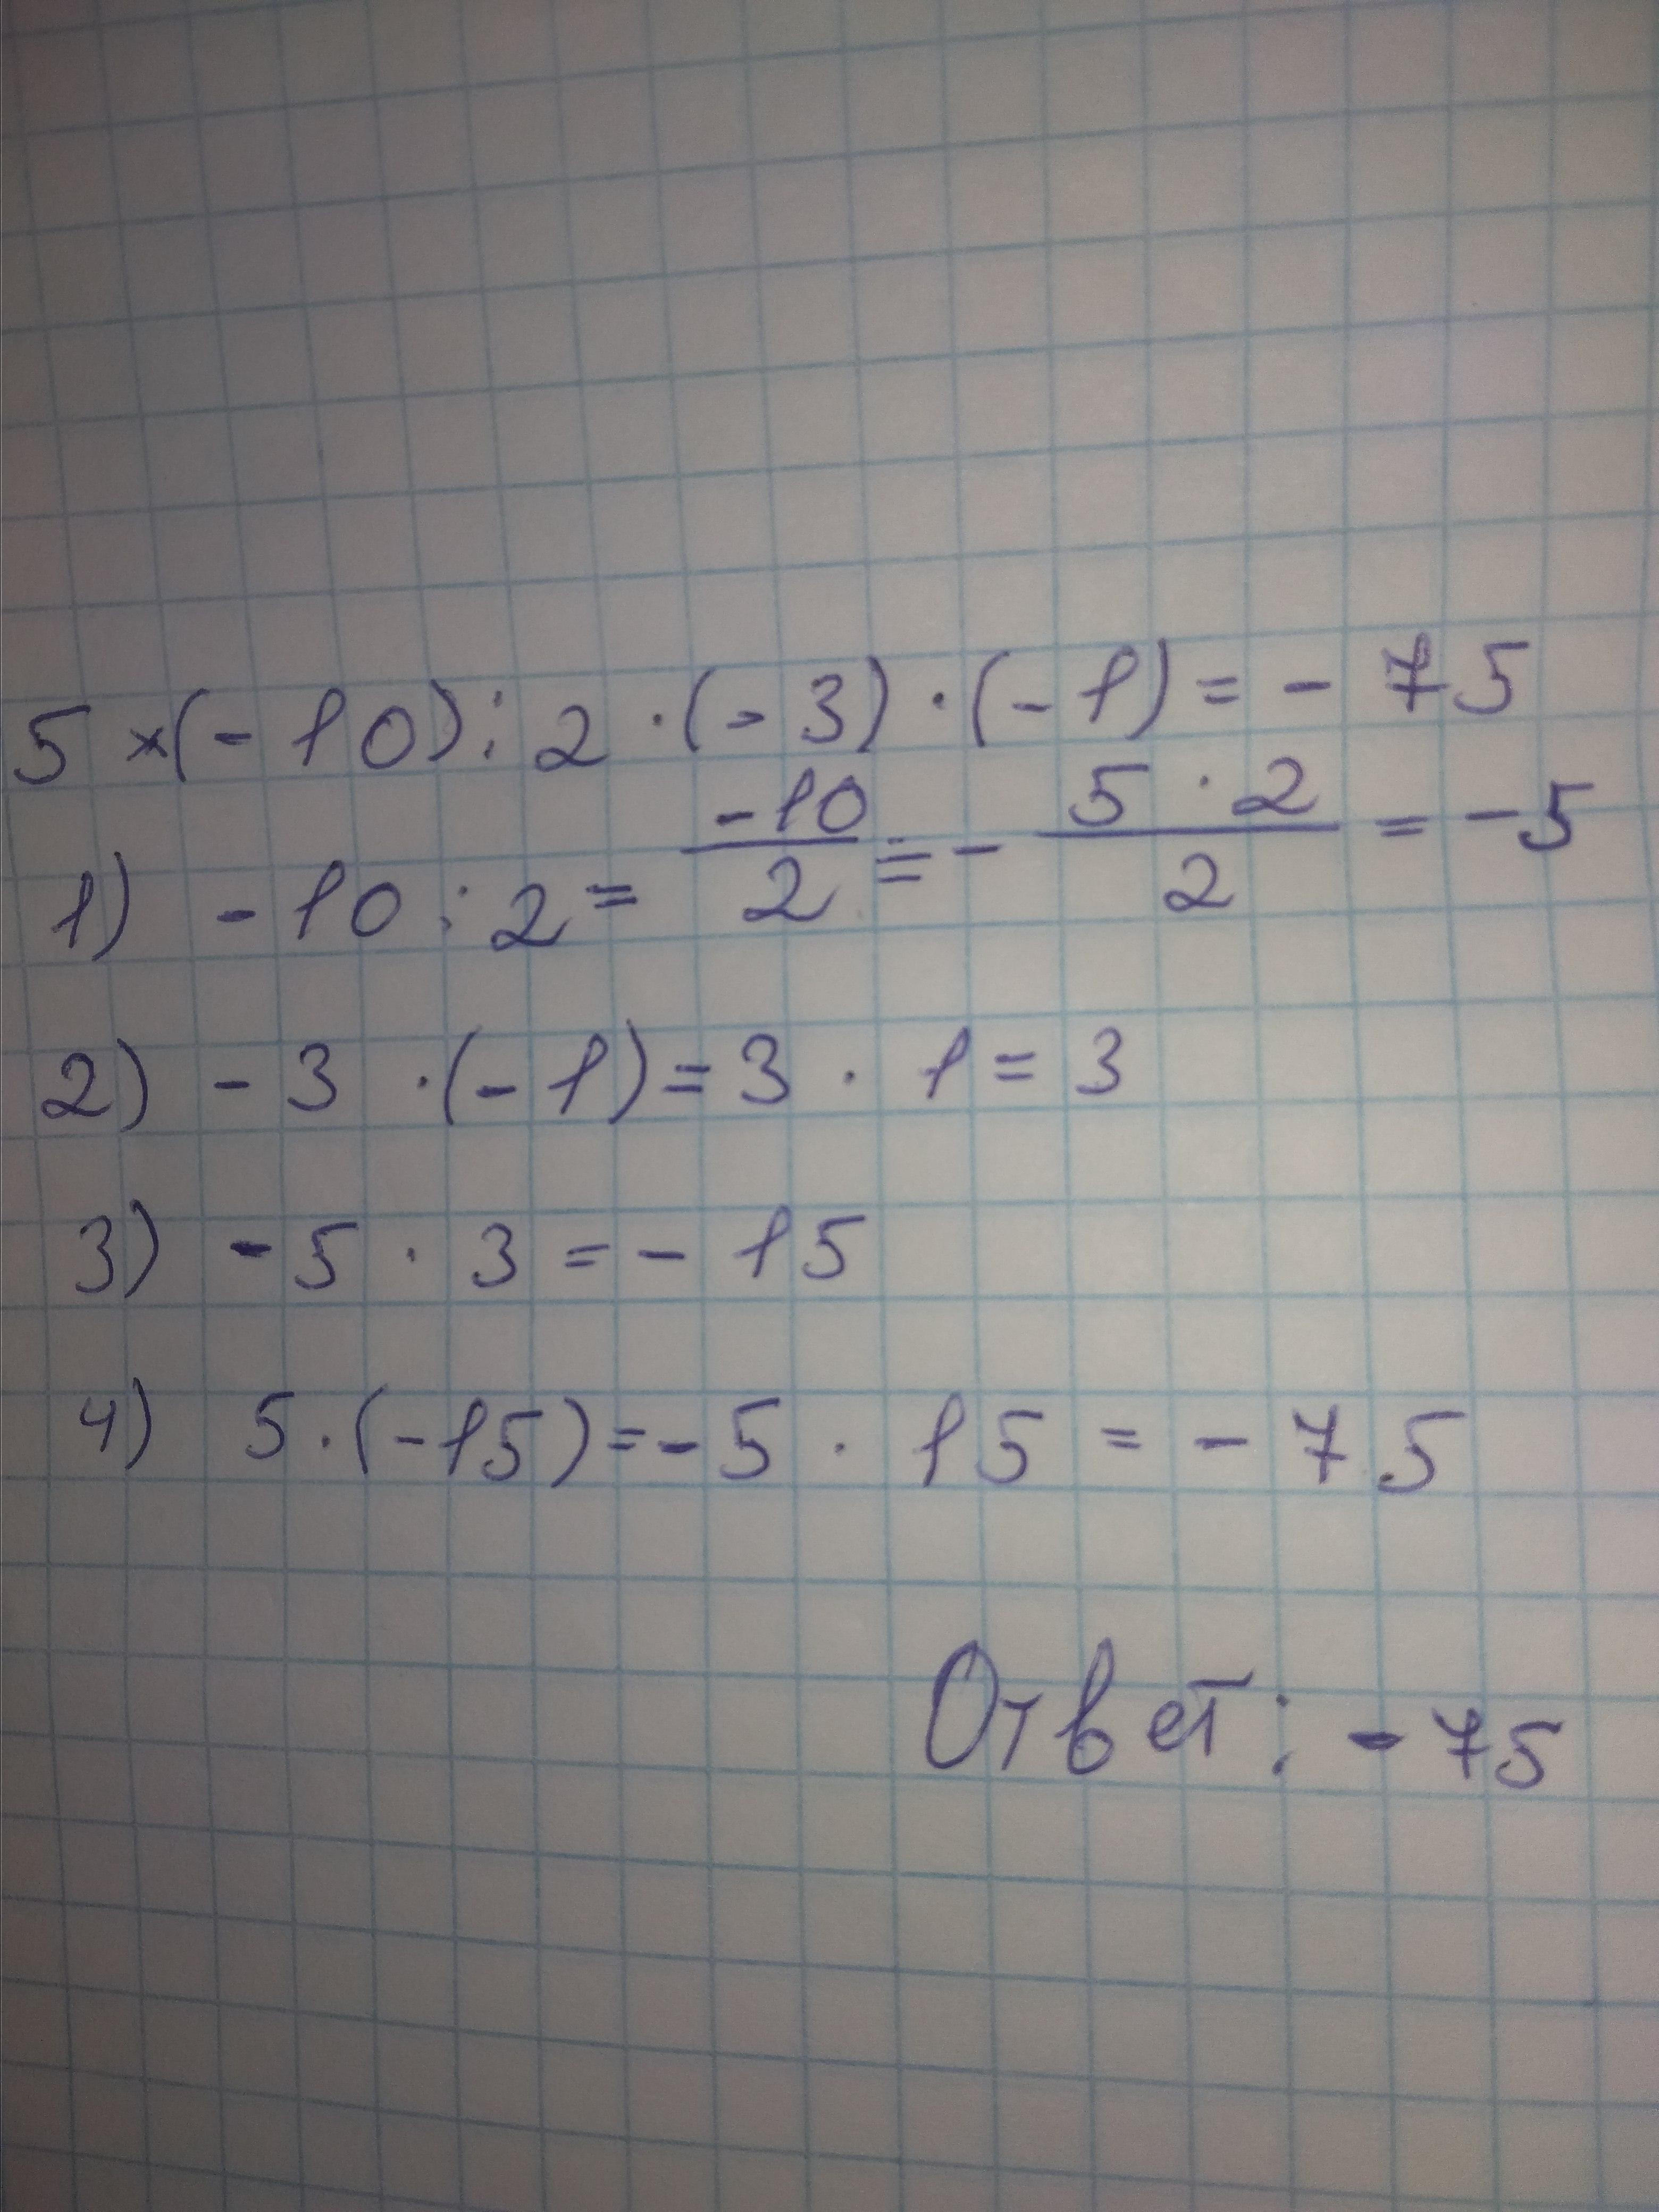 5 × (-10) : 2 · (-3) · (-1) = - 75
1) - 10 : 2 = -10/2 = - 5 · 2/2 = -5
2) - 3 · (-1) = 3 · 1 = 3
3) - 5 · 3 = - 15
4) 5 · (-15) = - 5 · 15 = - 75
Ответ: - 75